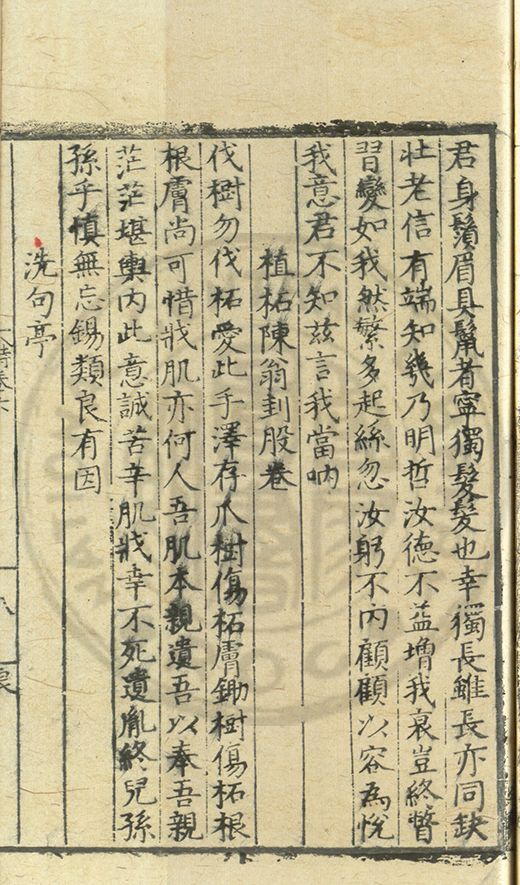 君身鬚眉具鬣者寧獨髮髮也幸獨長雖長亦同缺
壯老信有端知幾乃明哲汝德不益增我衰豈終督
習變如我然繁多起絲忽汝躬不內顧顧以容為悅
我意君不知茲言我當吶
植柘陳翁刲股卷
伐樹勿伐柘愛此手澤存爪樹傷柘膚鋤樹傷柘根
根膚尚可惜戕肌亦何人吾肌本親遺吾以奉吾親
茫茫堪輿內此意誠苦辛肌戕幸不死遺胤終兒孫
孫乎慎無忘錫類良有因
洗句亭